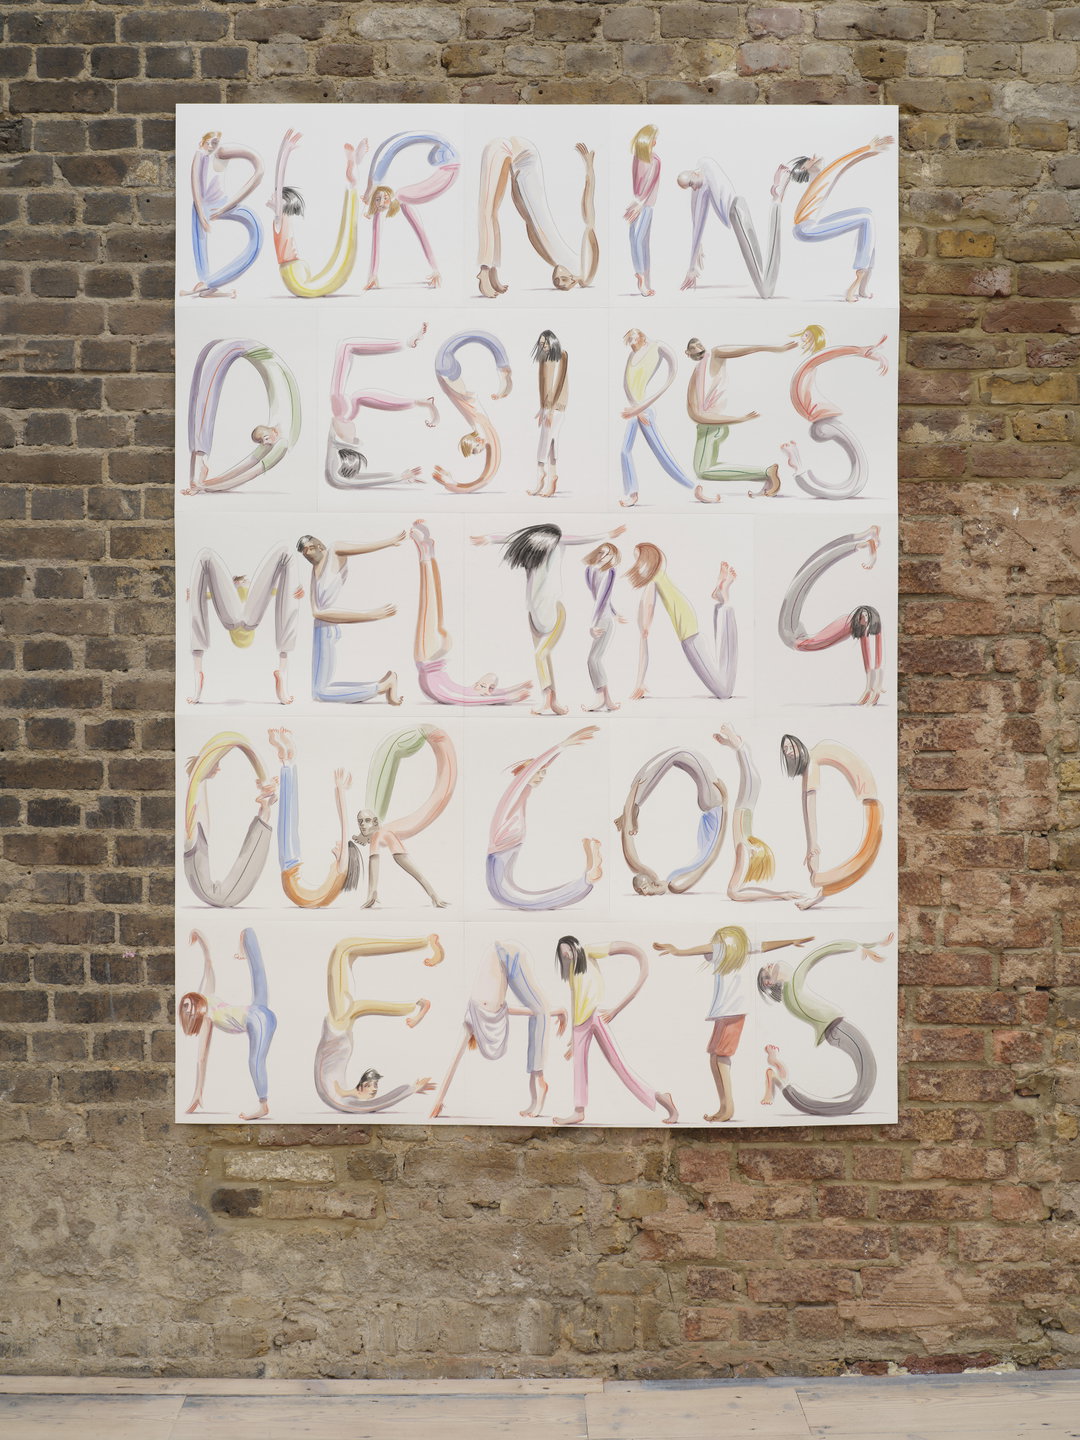 BURNING
DESIRES
MELTING
OUR COLD
HEARTS